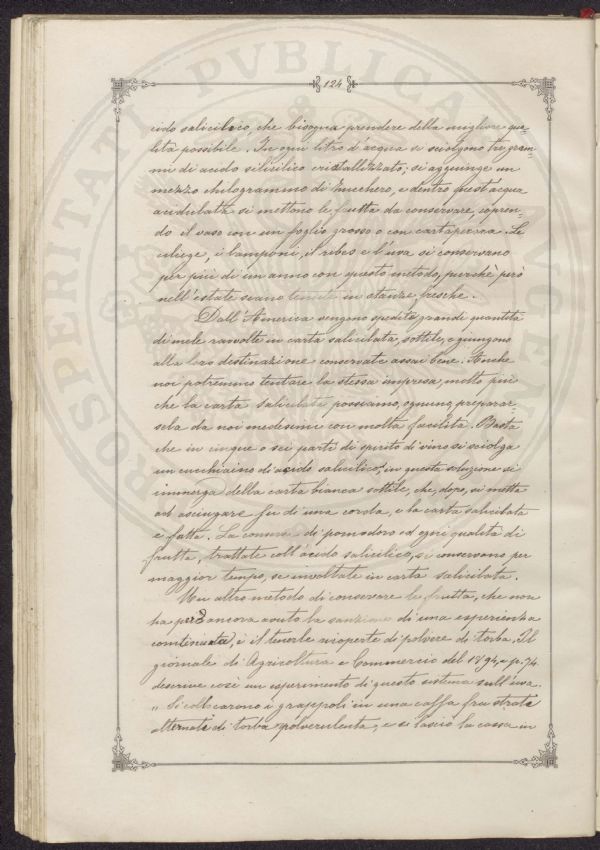 124
cido salicilico, che bisogna prendere della migliore qua-
lità possibile. In ogni litro d'acqua si sciolgono tre gram-
mi di acido silisilico cristallizzato; si aggiunge un
mezzo chilogrammo di zucchero, e dentro quest'acqua
acidulata si mettono le frutta da conservare, copren-
do il vaso con un foglio grosso o con cartapecora. Le
ciliege, i lamponi, il ribes e l'uva si conservano
per più di un anno con questo metodo, purchè però
nell'estate siano tenute in stanze fresche.
Dall'America vengono spedite grandi quantità
di mele ravvolte in carta salicilata, sottile, e giungono
alla loro destinazione conservate assai bene. Anche
noi potremmo tentare la stessa impresa, molto più
che la carta salicilata possiamo, ognuno, preparar-
sela da noi medesimi con molta facilità. Basta
che in cinque o sei parti di spirito di vino si sciolga
un cucchiaino di acido salicilico, in questa soluzione si
immerga della carta bianca sottile, che, dopo, si metta
ad asciugare su di una corda, e la carta salicilata
è fatta. Le conserve di pomodoro ed ogni qualità di
frutta, trattate coll'acido salicilico, si conservano per
maggior tempo, se involtate in carta salicilata.
Un altro metodo di conservare le frutta, che non
ha però ancora avuto la sanzione di una esperienza
continuata, è il tenerle ricoperte di polvere di torba. Il
giornale di Agricoltura e Commercio del 1894, a p. 74
descrive così un esperimento di questo sistema sull'uva.
„ Si collocarono i grappoli in una cassa fra strati
alternati di torba polverulenta, e si lasciò la cassa in
PROSPERITATI PVBLICAE AVGEN